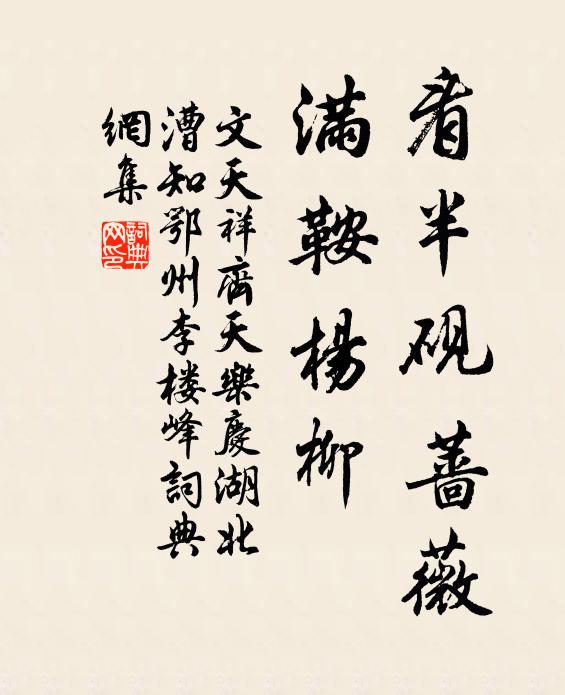 看半砚蔷薇
满鞍杨柳
文天祥齊天樂慶湖北
漕知鄂州李楼峰詞典
網集
詞典网印